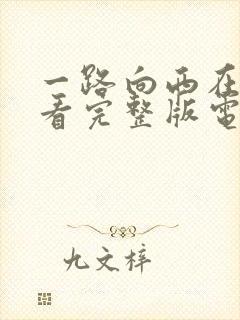 一路向西在
看完整版电
九文梓